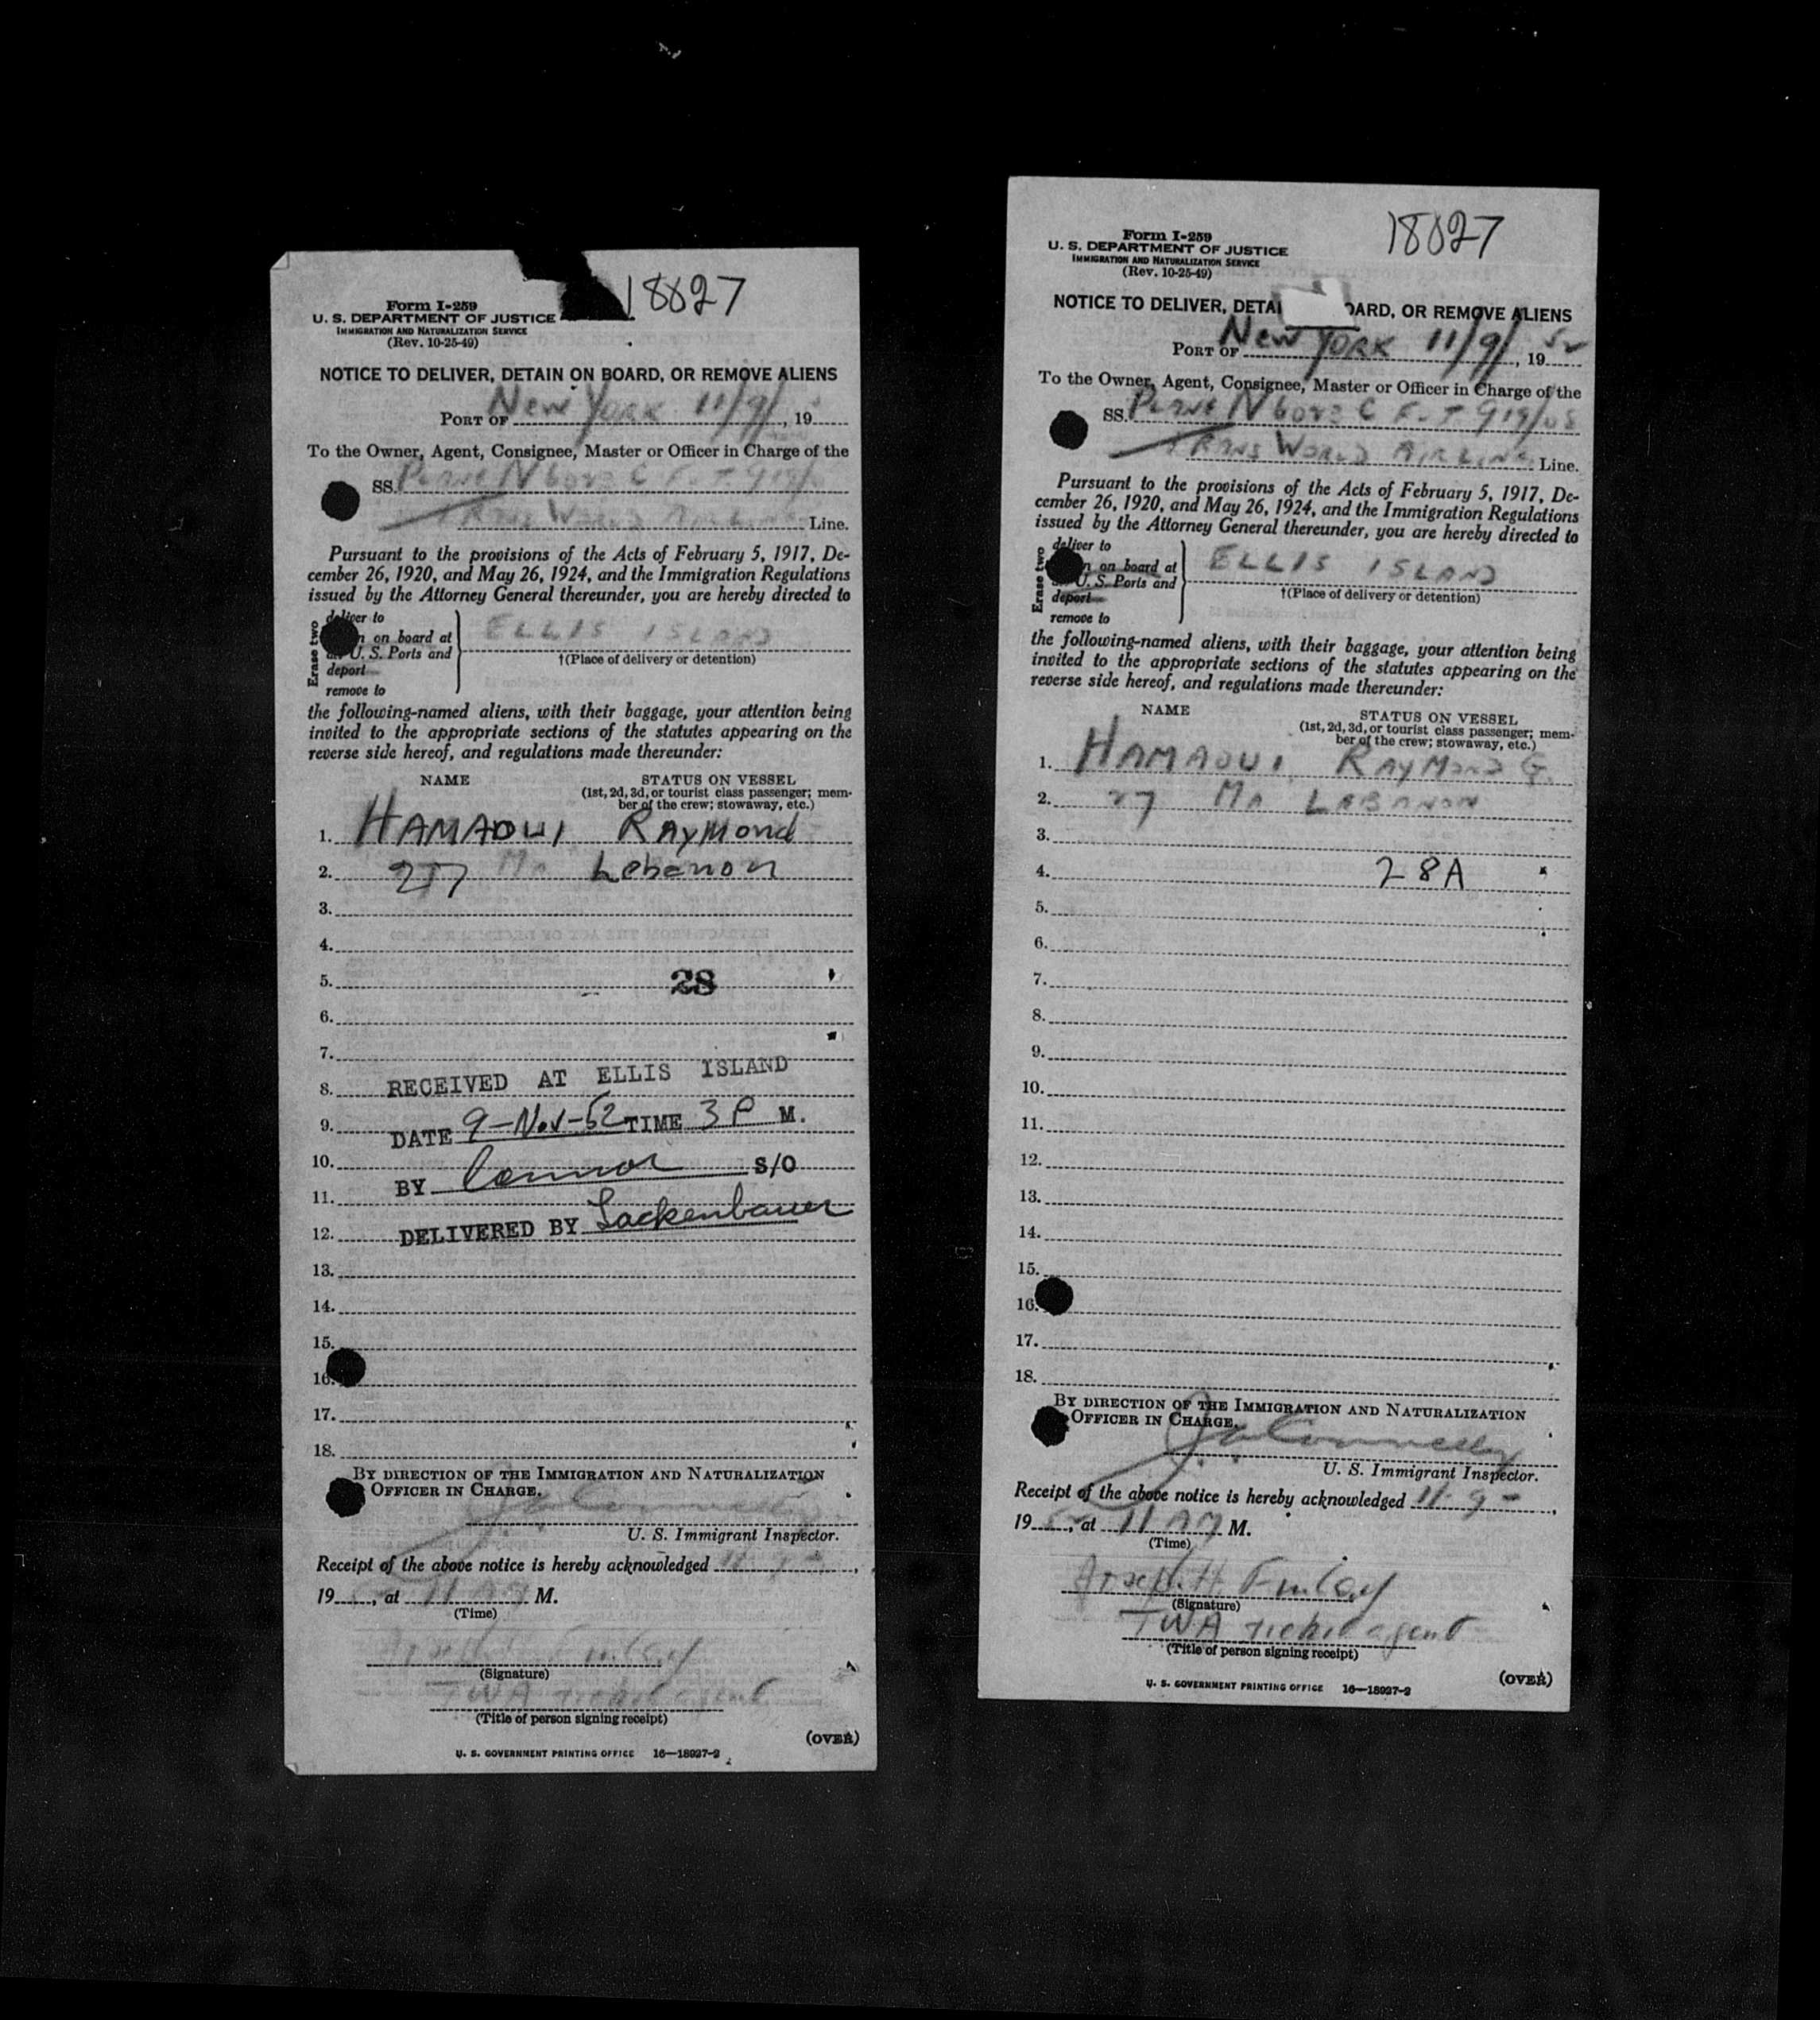 18827
Form I-259
U. S. DEPARTMENT OF JUSTICE
IMMIGRATION AND NATURALIZATION SERVICE
(Rev. 10-25-49)
NOTICE TO DELIVER, DETAIN ON BOARD, OR REMOVE ALIENS
PORT OF New York 11/9/, 19
To the Owner, Agent, Consignee, Master or Officer in Charge of the
SS. Plane N6023C
Trans World Airline Line.
Pursuant to the provisions of the Acts of February 5, 1917, De-
cember 26, 1920, and May 26, 1924, and the Immigration Regulations
issued by the Attorney General thereunder, you are hereby directed to
Erase two
deliver to
on board at
U. S. Ports and
deport
remove to
ELLIS ISLAND
†(Place of delivery or detention)
the following-named aliens, with their baggage, your attention being
invited to the appropriate sections of the statutes appearing on the
reverse side hereof, and regulations made thereunder:
NAME STATUS ON VESSEL
(1st, 2d, 3d, or tourist class passenger; mem-
ber of the crew; stowaway, etc.)
1. HAMAOUI RAYMOND
2. 27 Ma Lebanon
3.
4.
5. 28
6.
7.
8. RECEIVED AT ELLIS ISLAND
9. DATE 9-Nov-52 TIME 3 P M.
10. BY Connor S/O
11.
12. DELIVERED BY Lackenbauer
13.
14.
15.
16.
17.
18.
BY DIRECTION OF THE IMMIGRATION AND NATURALIZATION
OFFICER IN CHARGE.
U. S. Immigrant Inspector.
Receipt of the above notice is hereby acknowledged 11-9-,
19, at 11 AM M.
(Time)
Finlay
(Signature)
TWA ticket agent
(Title of person signing receipt)
(OVER)
U. S. GOVERNMENT PRINTING OFFICE 16—18927-2
18827
Form I-259
U. S. DEPARTMENT OF JUSTICE
IMMIGRATION AND NATURALIZATION SERVICE
(Rev. 10-25-49)
NOTICE TO DELIVER, DETAI OARD, OR REMOVE ALIENS
PORT OF New York 11/9/, 19 52
To the Owner, Agent, Consignee, Master or Officer in Charge of the
SS. Plane N6023C
Trans World Airline Line.
Pursuant to the provisions of the Acts of February 5, 1917, De-
cember 26, 1920, and May 26, 1924, and the Immigration Regulations
issued by the Attorney General thereunder, you are hereby directed to
Erase two
deliver to
on board at
U. S. Ports and
deport
remove to
ELLIS ISLAND
†(Place of delivery or detention)
the following-named aliens, with their baggage, your attention being
invited to the appropriate sections of the statutes appearing on the
reverse side hereof, and regulations made thereunder:
NAME STATUS ON VESSEL
(1st, 2d, 3d, or tourist class passenger; mem-
ber of the crew; stowaway, etc.)
1. HAMAOUI RAYMOND G.
2. 27 Ma LEBANON
3.
4. 28A
5.
6.
7.
8.
9.
10.
11.
12.
13.
14.
15.
16.
17.
18.
BY DIRECTION OF THE IMMIGRATION AND NATURALIZATION
OFFICER IN CHARGE.
Connelly
U. S. Immigrant Inspector.
Receipt of the above notice is hereby acknowledged 11-9-,
19 52, at 11 AM M.
(Time)
H. Finlay
(Signature)
TWA ticket agent
(Title of person signing receipt)
(OVER)
U. S. GOVERNMENT PRINTING OFFICE 16—18927-2